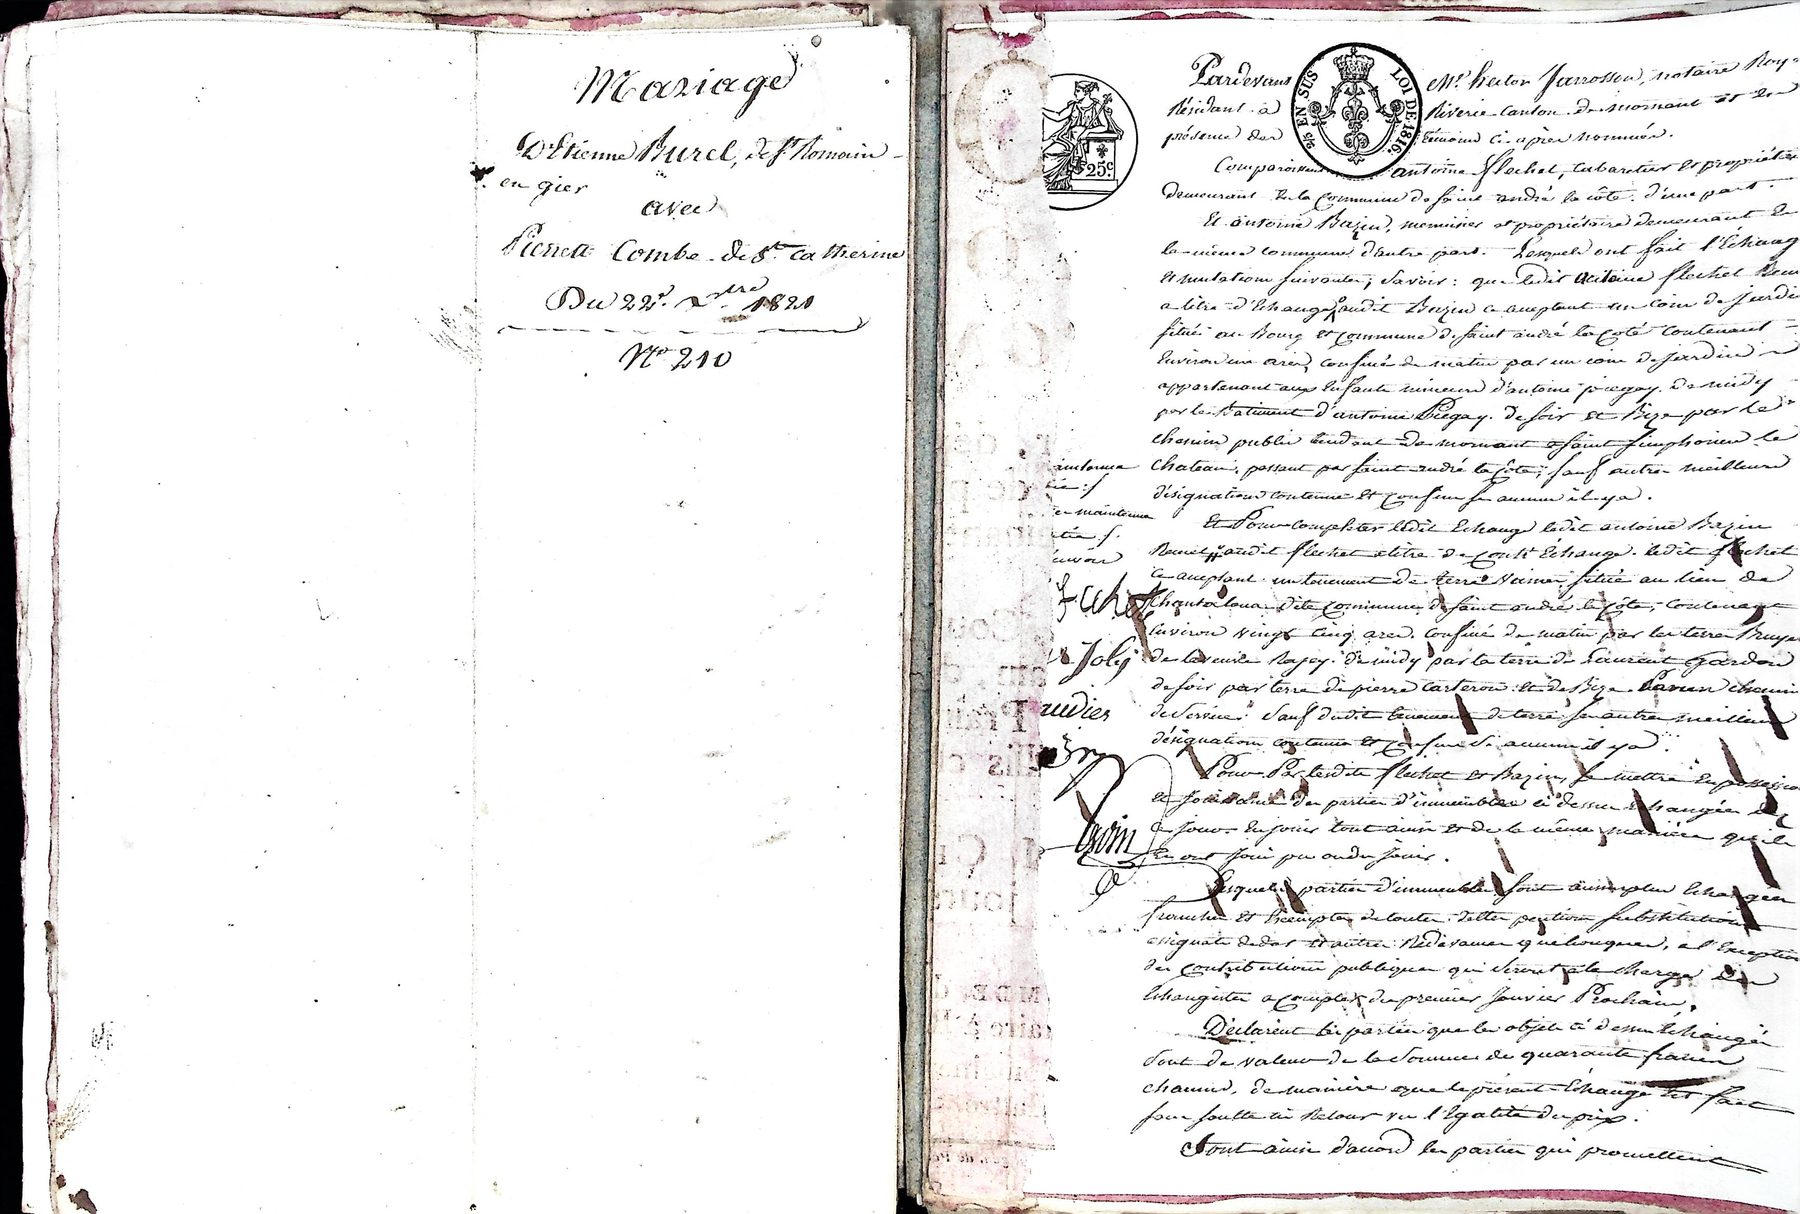 Mariage
D'Etienne Burel, de St Romain
en gier
avec
Pierrette Combe de Ste Catherine
Du 22 1821
No 210
Pardevant Me hector Jarrosson, notaire Roy
Résidant à Riverie canton de mornant et en
présence des témoins ci-après nommés.
Comparoissent antoine flechet, cabaretier et propriétaire
demeurant en la Commune de saint andré la côte, d'une part.
Et antoine Bazin, menuisier et propriétaire demeurant en
la même commune d'autre part. Lesquels ont fait l'Echange
et mutation suivante, savoir: que ledit antoine flechet Remet
a titre d'Echange audit Bazin ce acceptant un coin de jardin
situé au Bourg et commune de saint andré la coté contenant
Environ un are, confiné de matin par un coin de jardin
appartenant aux Enfants mineurs d'antoine piegay, de midy
par le Batiment d'antoine Piegay, de soir et Bize par le
chemin public tendant de mornant a saint simphorien le
chateau, passant par saint andré la côte; sauf autre meilleure
désignation contenue et confins se aucun il y a.
Et Pour compléter ledit Echange ledit antoine Bazin
Remet audit flechet a titre de contr'Echange, ledit flechet
ce acceptant un tenement de terre située au lieu de
dite commune de saint andré la côte, contenant
Environ vingt cinq ares, confiné de matin par les terres
de la veuve de midy par la terre de Laurent Gardon
de soir par terre de pierre carteron et de Bize chemin
de service. Sauf dudit tenement de terre se autre meilleure
désignation contenue et confins se aucun il y a.
Pour Par lesdits flechet et Bazin, se mettre en possession
et jouissance des parties d'immeubles ci dessus Echangées de
ce jour. En jouir tout ainsi et de la même manière qu'ils
En ont joui pu ou du jouir.
Lesquelles parties d'immeubles sont Echangées
franches et Exemptes de toutes dettes pentions substitutions
et autres Redevances quelconques, a l'Exception
des contributions publiques qui seront a la charge des
Echangistes a compter du premier Janvier Prochain.
Déclarent les parties que les objets ci dessus Echangés
sont de valeur de la Somme de quarante francs
chacun, de manière que le présent Echange est fait
sans soulte ni Retour vu l'Egalité du prix.
Sont ainsi d'accord les parties qui promettent
maintenue
Joly
Bazin
% EN SUS
LOI DE 1816.
25 c.